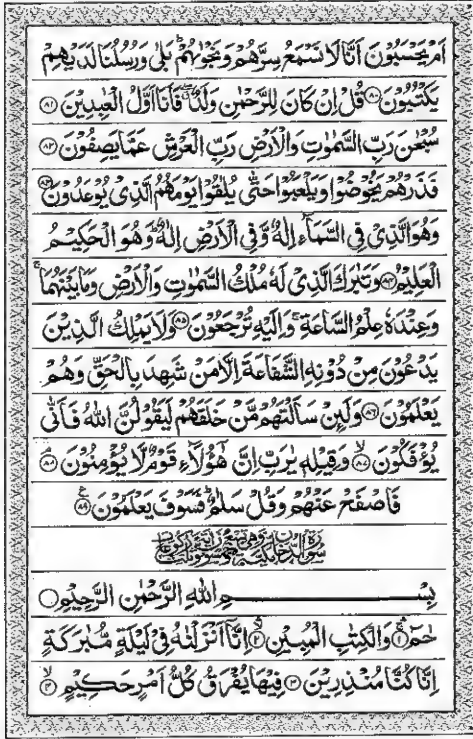 اَمْ يَحْسَبُوْنَ اَنَّا لَا نَسْمَعُ سِرَّهُمْ وَنَجْوٰىهُمْ ؕ بَلٰى وَرُسُلُنَا لَدَيْهِمْ
يَكْتُبُوْنَ ۝۸۰ قُلْ اِنْ كَانَ لِلرَّحْمٰنِ وَلَدٌ ۖ فَاَنَا اَوَّلُ الْعٰبِدِيْنَ ۝۸۱
سُبْحٰنَ رَبِّ السَّمٰوٰتِ وَالْاَرْضِ رَبِّ الْعَرْشِ عَمَّا يَصِفُوْنَ ۝۸۲
فَذَرْهُمْ يَخُوْضُوْا وَيَلْعَبُوْا حَتّٰى يُلٰقُوْا يَوْمَهُمُ الَّذِىْ يُوْعَدُوْنَ ۝۸۳
وَهُوَ الَّذِىْ فِى السَّمَآءِ اِلٰهٌ وَّفِى الْاَرْضِ اِلٰهٌ ؕ وَهُوَ الْحَكِيْمُ
الْعَلِيْمُ ۝۸۴ وَتَبٰرَكَ الَّذِىْ لَهٗ مُلْكُ السَّمٰوٰتِ وَالْاَرْضِ وَمَا بَيْنَهُمَا ۚ
وَعِنْدَهٗ عِلْمُ السَّاعَةِ ۚ وَاِلَيْهِ تُرْجَعُوْنَ ۝۸۵ وَلَا يَمْلِكُ الَّذِيْنَ
يَدْعُوْنَ مِنْ دُوْنِهِ الشَّفَاعَةَ اِلَّا مَنْ شَهِدَ بِالْحَقِّ وَهُمْ
يَعْلَمُوْنَ ۝۸۶ وَلَئِنْ سَاَلْتَهُمْ مَّنْ خَلَقَهُمْ لَيَقُوْلُنَّ اللّٰهُ فَاَنّٰى
يُؤْفَكُوْنَ ۝۸۷ ۙ وَقِيْلِهٖ يٰرَبِّ اِنَّ هٰٓؤُلَآءِ قَوْمٌ لَّا يُؤْمِنُوْنَ ۝۸۸ ۘ
فَاصْفَحْ عَنْهُمْ وَقُلْ سَلٰمٌ ؕ فَسَوْفَ يَعْلَمُوْنَ ۝۸۹ ۧ
سورة الدخان مكية
بِسْمِ اللّٰهِ الرَّحْمٰنِ الرَّحِيْمِ ۝
حٰمٓ ۝۱ وَالْكِتٰبِ الْمُبِيْنِ ۝۲ اِنَّآ اَنْزَلْنٰهُ فِىْ لَيْلَةٍ مُّبٰرَكَةٍ
اِنَّا كُنَّا مُنْذِرِيْنَ ۝۳ فِيْهَا يُفْرَقُ كُلُّ اَمْرٍ حَكِيْمٍ ۝۴ ۙ